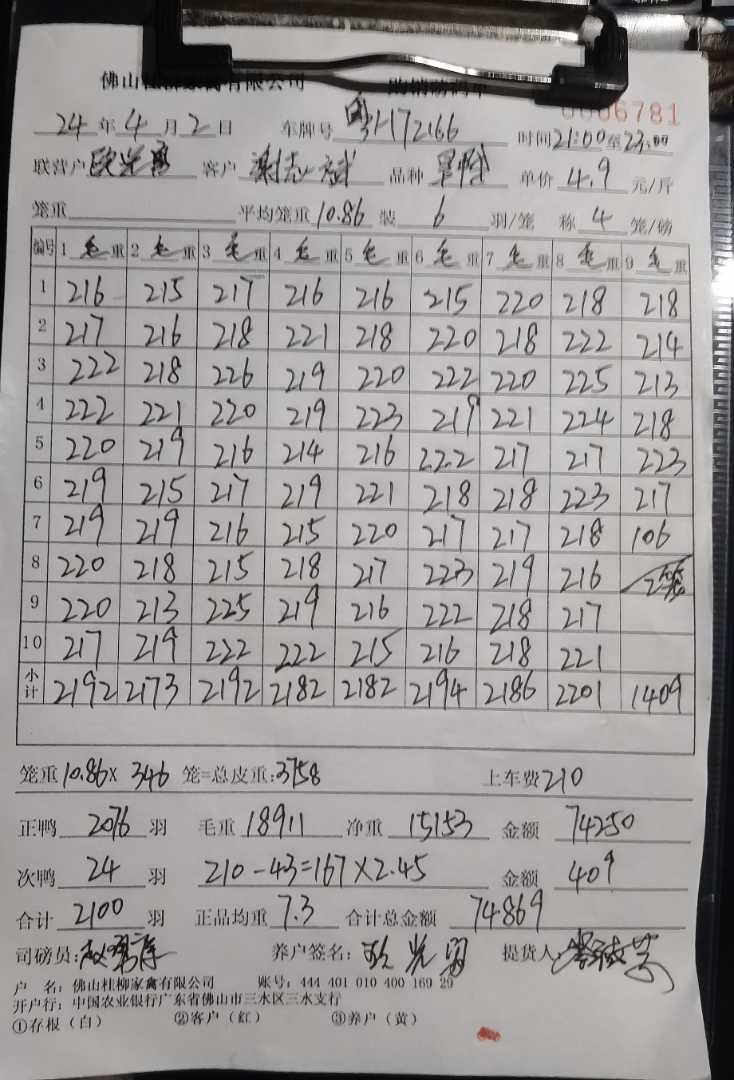 佛山桂柳家禽有限公司 购销磅码单
0006781
24 年 4 月 2 日 车牌号 粤H172166 时间 21:00 至 23:00
联营户 客户 谢志斌 品种 单价 4.9 元/斤
笼重 平均笼重 10.86 装 6 羽/笼 称 4 笼/磅
编号 1 毛 重 2 毛 重 3 毛 重 4 毛 重 5 毛 重 6 毛 重 7 毛 重 8 毛 重 9 毛 重
1 216 215 217 216 216 215 220 218 218
2 217 216 218 221 218 220 218 222 214
3 222 218 226 219 220 222 220 225 213
4 222 221 220 219 223 219 221 224 218
5 220 219 216 214 216 222 217 217 223
6 219 215 217 219 221 218 218 223 217
7 219 219 216 215 220 217 217 218 106
8 220 218 215 218 217 223 219 216 2笼
9 220 213 225 219 216 222 218 217
10 217 219 222 222 215 216 218 221
小计 2192 2173 2192 2182 2182 2194 2186 2201 1409
笼重 10.86 X 346 笼=总皮重: 3758 上车费 210
正鸭 2076 羽 毛重 18911 净重 15153 金额 74250
次鸭 24 羽 210-43=167X2.45 金额 409
合计 2100 羽 正品均重 7.3 合计总金额 74869
司磅员: 养户签名: 提货人:
户 名: 佛山桂柳家禽有限公司 账号: 444 401 010 400 169 29
开户行: 中国农业银行广东省佛山市三水区三水支行
①存根（白） ②客户（红） ③养户（黄）